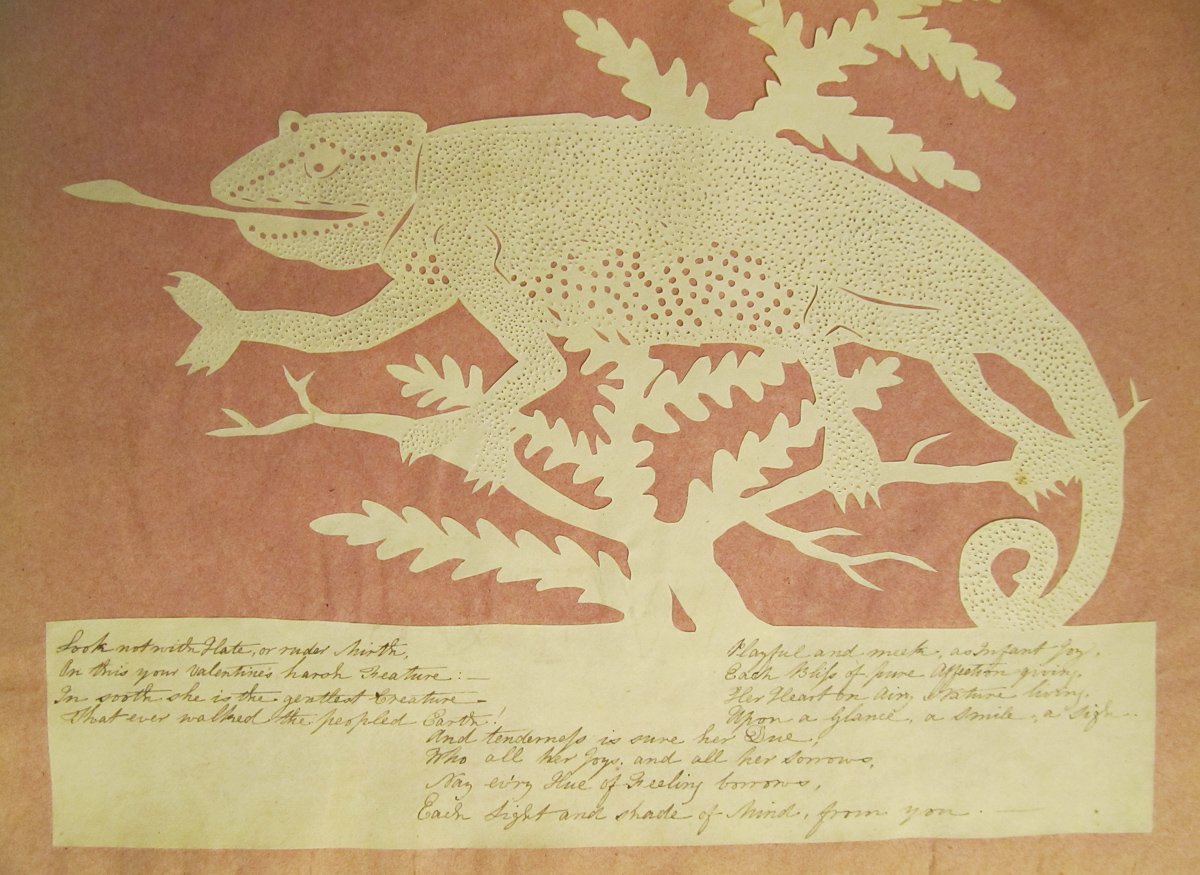 Look not with Hate, or ruder Mirth,
On this your Valentine's harsh Feature: —
In sooth she is the gentlest Creature —
That ever walked the peopled Earth!
Playful and meek, as Infant Joy.
Each Bliss of pure Affection giving.
Her Heart on Airy Nature living.
Upon a Glance, a Smile, a Sigh.
And tenderness is sure her Due,
Who all her Joys, and all her Sorrows,
Nay ev'ry Hue of Feeling borrows,
Each Light and shade of Mind, from you —